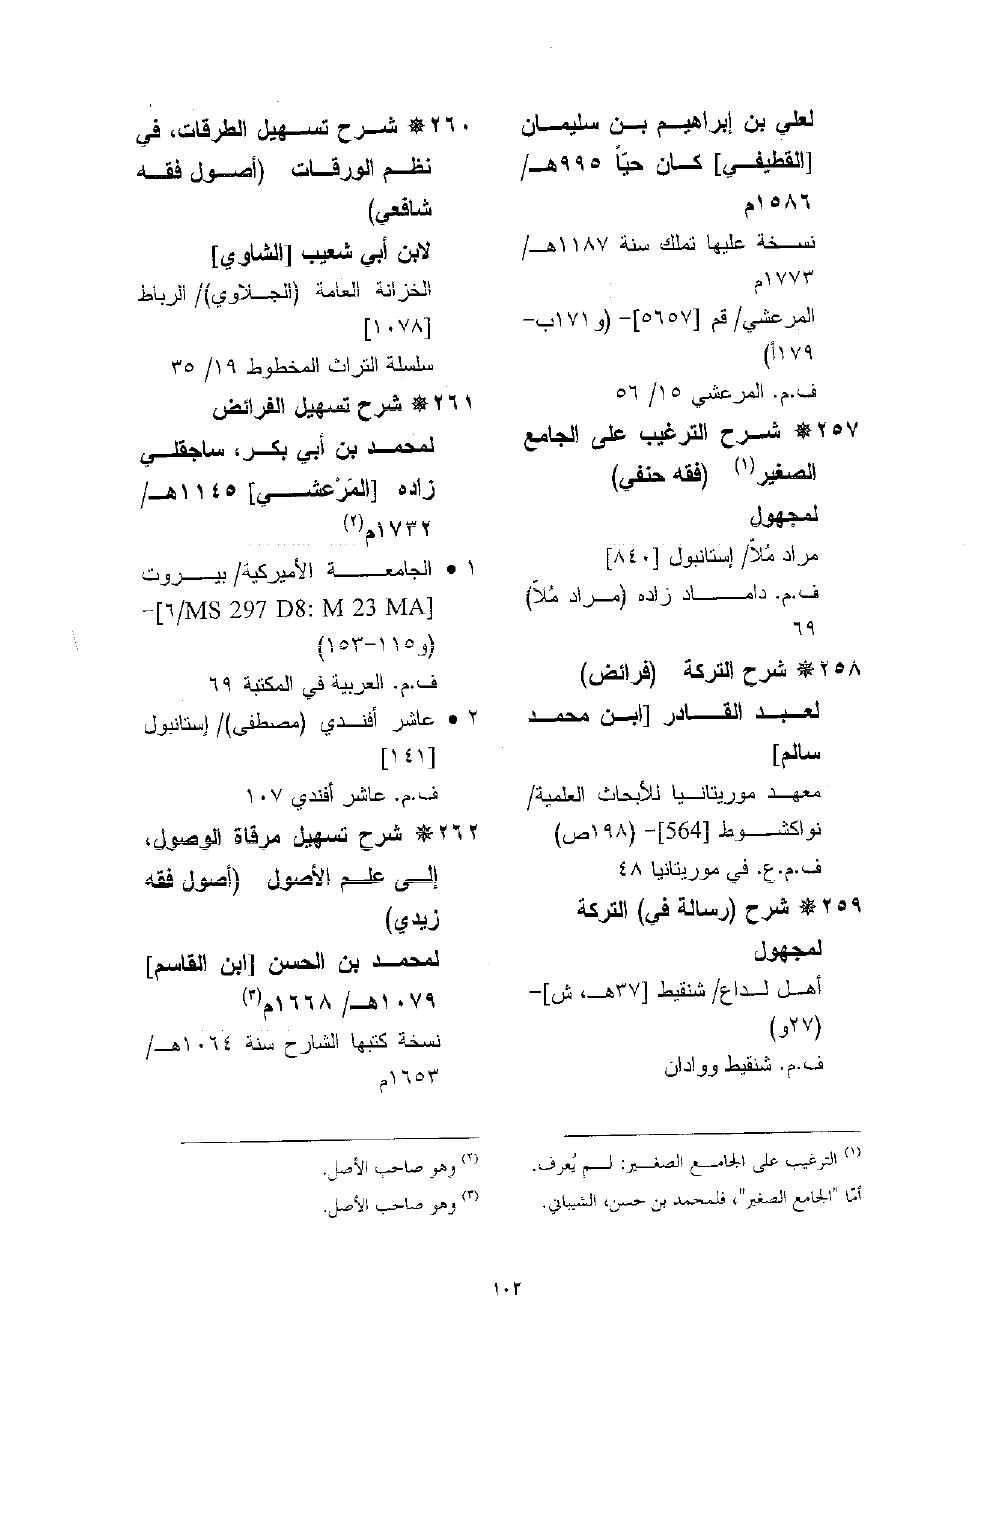 لعلي بن إبراهيم بن سليمان
[القطيفي] كان حيّاً ٩٩٥هـ/
١٥٨٦م
نسخة عليها تملك سنة ١١٨٧هـ/
١٧٧٣م
المرعشي/ قم [٥٦٥٧]- (و ١٧١ب-
١٧٩أ)
ف.م. المرعشي ١٥/ ٥٦
٢٥٧* شرح الترغيب على الجامع
الصغير(١) (فقه حنفي)
لمجهول
مراد مُلاّ/ إستانبول [٨٤٠]
ف.م. داماد زاده (مراد مُلاّ)
٦٩
٢٥٨* شرح التركة (فرائض)
لعبد القادر [ابن محمد
سالم]
معهد موريتانيا للأبحاث العلمية/
نواكشوط [564]- (١٩٨ص)
ف.م.ع. في موريتانيا ٤٨
٢٥٩* شرح (رسالة في) التركة
لمجهول
أهل لداع/ شنقيط [٣٧هـ، ش]-
(٢٧و)
ف.م. شنقيط ووادان
(١) الترغيب على الجامع الصغير: لم يُعرف.
أمّا "الجامع الصغير"، فلمحمد بن حسن، الشيباني.
٢٦٠* شرح تسهيل الطرقات، في
نظم الورقات (أصول فقه
شافعي)
لابن أبي شعيب [الشاوي]
الخزانة العامة (الجلاوي)/ الرباط
[١٠٧٨]
سلسلة التراث المخطوط ١٩/ ٣٥
٢٦١* شرح تسهيل الفرائض
لمحمد بن أبي بكر، ساجقلي
زاده [المَرْعشي] ١١٤٥هـ/
١٧٣٢م(٢)
١ • الجامعة الأميركية/ بيروت
[٦/MS 297 D8: M 23 MA]-
(و١١٥-١٥٣)
ف.م. العربية في المكتبة ٦٩
٢ • عاشر أفندي (مصطفى)/ إستانبول
[١٤١]
ف.م. عاشر أفندي ١٠٧
٢٦٢* شرح تسهيل مرقاة الوصول،
إلى علم الأصول (أصول فقه
زيدي)
لمحمد بن الحسن [ابن القاسم]
١٠٧٩هـ/ ١٦٦٨م(٣)
نسخة كتبها الشارح سنة ١٠٦٤هـ/
١٦٥٣م
(٢) وهو صاحب الأصل.
(٣) وهو صاحب الأصل.
١٠٢